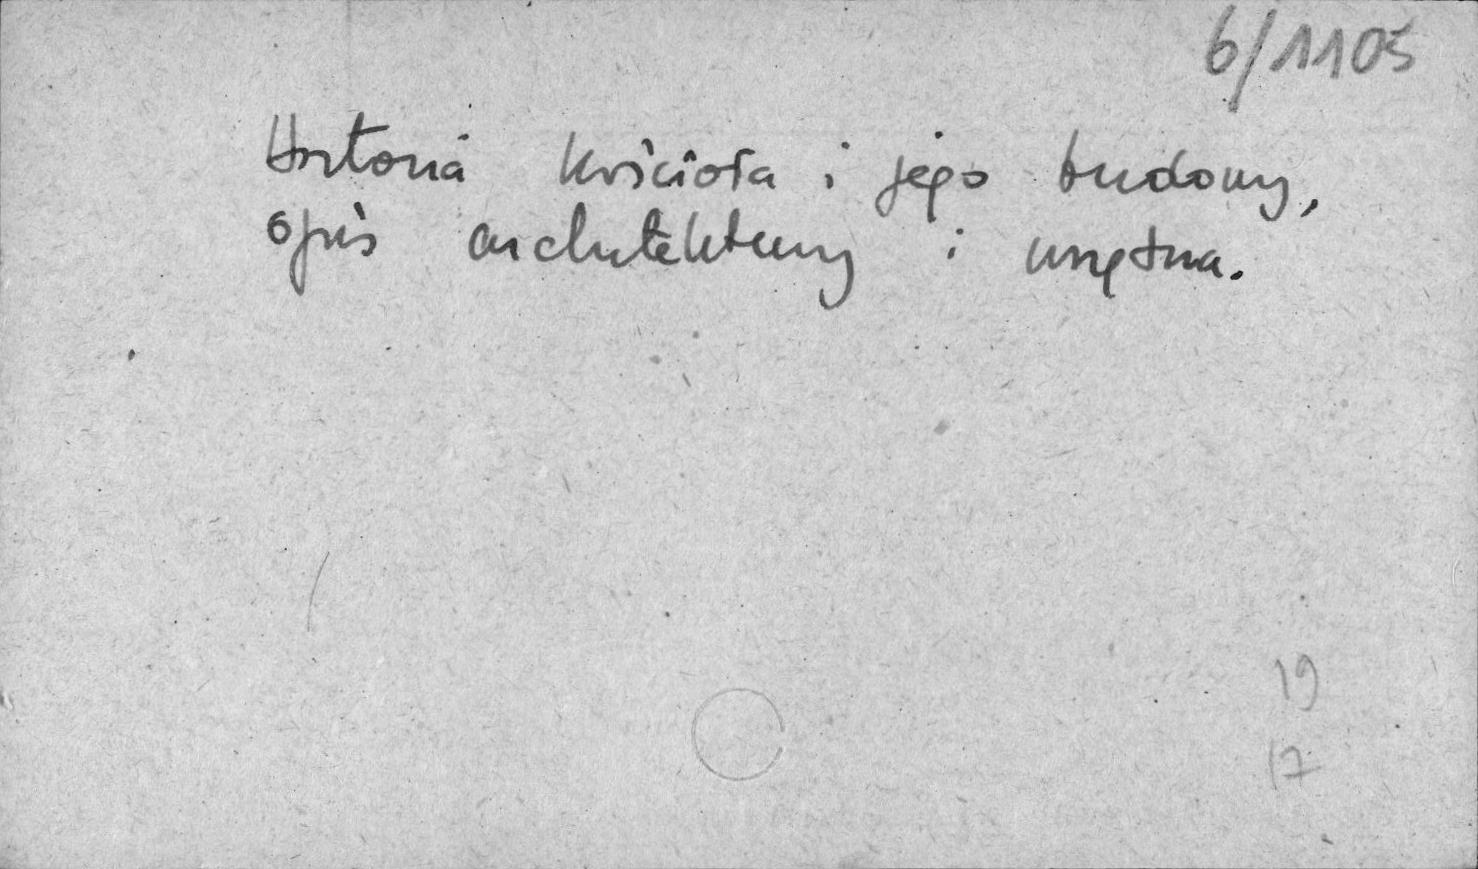 6/1105
Historia kościoła i jego budowy,
opis architektury i wnętrza.
19
17